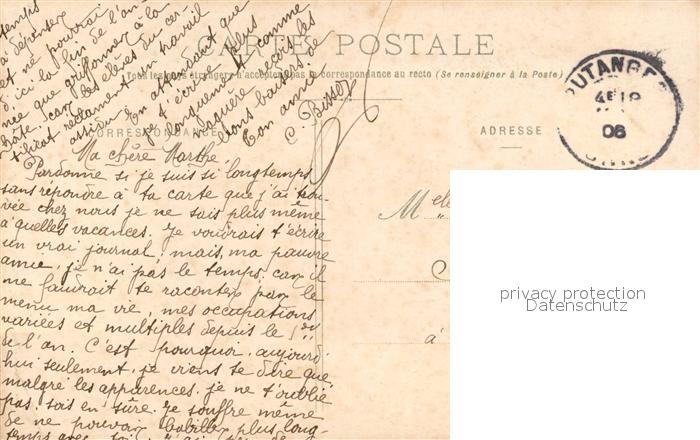 CARTE POSTALE
Tous les pays étrangers n'acceptent pas la correspondance au recto (Se renseigner à la Poste)
CORRESPONDANCE
ADRESSE
PUTANGES
06
ORNE
Ma chère Marthe
Pardonne si je suis si longtemps
sans répondre à ta carte que j'ai trou-
vée chez nous je ne sais plus même
à quelles vacances. Je voudrais t'écrire
un vrai journal, mais, ma pauvre
amie, je n'ai pas le temps, car il
me faudrait te raconter par le
menu ma vie, mes occupations
variées et multiples depuis le 1er
de l'an. C'est pourquoi, aujourd'
hui seulement, je viens te dire que
malgré les apparences, je ne t'oublie
pas, sois en sûre. Je souffre même
de ne pouvoir babiller plus long-
temps avec toi
temps
à dépenser
et ne pourrai
d'ici la fin de l'an-
née que griffonner à la
hâte, car les élèves du cer-
tificat réclament un travail
assidu. En attendant que
je t'écrive plus
longuement et comme
naguère, reçois les
bons baisers de
Ton amie
C. Bisson
Melle
à
privacy protection
Datenschutz